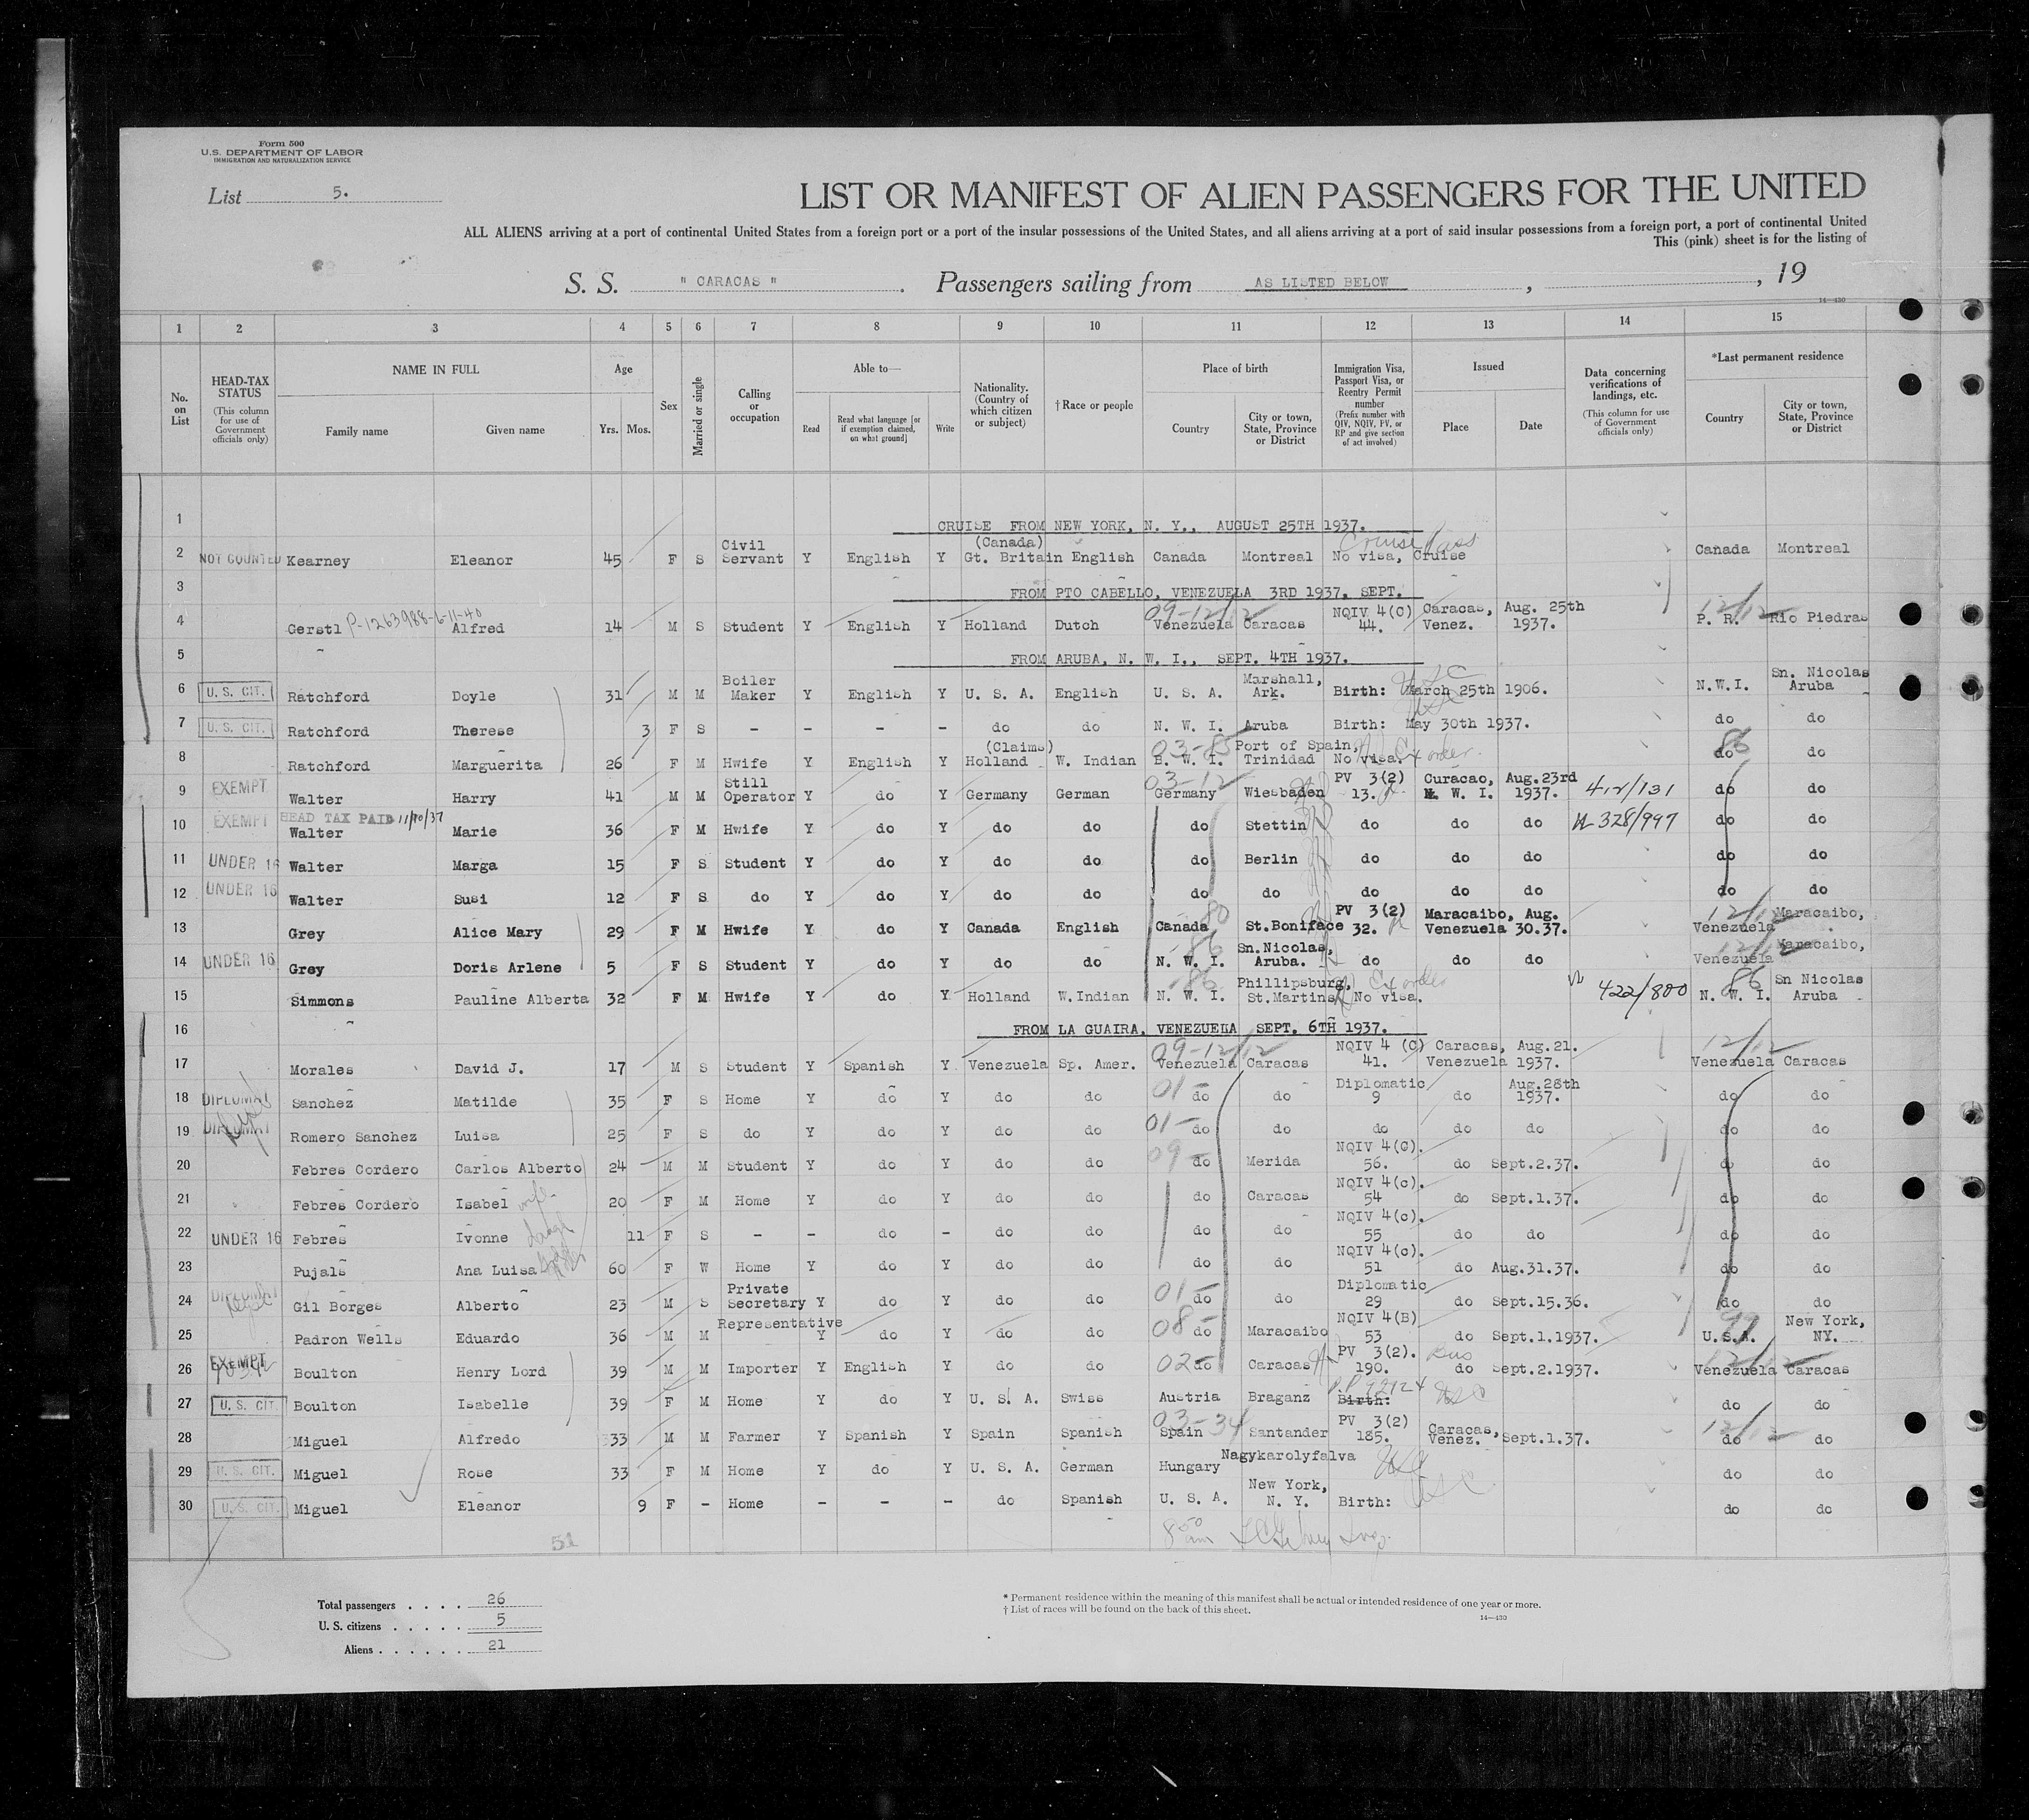 Form 500
U.S. DEPARTMENT OF LABOR
IMMIGRATION AND NATURALIZATION SERVICE
List 5.
LIST OR MANIFEST OF ALIEN PASSENGERS FOR THE UNITED
ALL ALIENS arriving at a port of continental United States from a foreign port or a port of the insular possessions of the United States, and all aliens arriving at a port of said insular possessions from a foreign port, a port of continental United
This (pink) sheet is for the listing of
S. S. " CARACAS " . Passengers sailing from AS LISTED BELOW , , 19
14—430
1 2 3 4 5 6 7 8 9 10 11 12 13 14 15
No. on List
HEAD-TAX STATUS (This column for use of Government officials only)
NAME IN FULL
Family name Given name
Age
Yrs. Mos.
Sex
Married or single
Calling or occupation
Able to—
Read Read what language [or if exemption claimed, on what ground] Write
Nationality. (Country of which citizen or subject)
†Race or people
Place of birth
Country City or town, State, Province or District
Immigration Visa, Passport Visa, or Reentry Permit number (Prefix number with QIV, NQIV, PV, or RP and give section of act involved)
Issued
Place Date
Data concerning verifications of landings, etc. (This column for use of Government officials only)
*Last permanent residence
Country City or town, State, Province or District
1 CRUISE FROM NEW YORK, N. Y., AUGUST 25TH 1937.
2 NOT COUNTED Kearney Eleanor 45 F S Civil Servant Y English Y (Canada) Gt. Britain English Canada Montreal No visa, Cruise Cruise Pass Canada Montreal
3 FROM PTO CABELLO, VENEZUELA 3RD 1937. SEPT.
4 Gerstl P-1263988-6-11-40 Alfred 14 M S Student Y English Y Holland Dutch 09-12/12 Venezuela Caracas NQIV 4(C) 44. Caracas, Venez. Aug. 25th 1937. 12/12 P. R. Rio Piedras
5 FROM ARUBA, N. W. I., SEPT. 4TH 1937.
6 U. S. CIT. Ratchford Doyle 31 M M Boiler Maker Y English Y U. S. A. English U. S. A. Marshall, Ark. Birth: March 25th 1906. USC N.W.I. Sn. Nicolas Aruba
7 U. S. CIT. Ratchford Therese 3 F S - - - - do do N. W. I. Aruba Birth: May 30th 1937. USC do do
8 Ratchford Marguerita 26 F M Hwife Y English Y (Claims) Holland W. Indian 03-85 B. W. I. Port of Spain, Trinidad No visa. Ex order. 86 do do
9 EXEMPT Walter Harry 41 M M Still Operator Y do Y Germany German 03-12 Germany Wiesbaden PV 3(2) 13. Curacao, N. W. I. Aug.23rd 1937. 412/131 do do
10 EXEMPT HEAD TAX PAID 11/10/37 Walter Marie 36 F M Hwife Y do Y do do do Stettin do do do 328/997 do do
11 UNDER 16 Walter Marga 15 F S Student Y do Y do do do Berlin do do do do do
12 UNDER 16 Walter Susi 12 F S do Y do Y do do do do do do do do do
13 Grey Alice Mary 29 F M Hwife Y do Y Canada English 80 Canada St.Boniface PV 3(2) 32. Maracaibo, Venezuela Aug. 30.37. 12/12 Venezuela Maracaibo,
14 UNDER 16 Grey Doris Arlene 5 F S Student Y do Y do do 86 N. W. I. Sn.Nicolas, Aruba. do do do 12/12 Venezuela Maracaibo,
15 Simmons Pauline Alberta 32 F M Hwife Y do Y Holland W.Indian 86 N. W. I. Phillipsburg, St.Martins No visa. Ex order 422/800 86 N. W. I. Sn Nicolas Aruba
16 FROM LA GUAIRA, VENEZUELA SEPT. 6TH 1937.
17 Morales David J. 17 M S Student Y Spanish Y Venezuela Sp. Amer. 09-12/12 Venezuela Caracas NQIV 4 (C) 41. Caracas, Venezuela Aug.21. 1937. 12/12 Venezuela Caracas
18 DIPLOMAT Sanchez Matilde 35 F S Home Y do Y do do 01- do do Diplomatic 9 do Aug.28th 1937. do do
19 DIPLOMAT Romero Sanchez Luisa 25 F S do Y do Y do do 01- do do do do do do do
20 Febres Cordero Carlos Alberto 24 M M Student Y do Y do do 09- do Merida NQIV 4(C). 56. do Sept.2.37. do do
21 Febres Cordero Isabel wife 20 F M Home Y do Y do do do Caracas NQIV 4(c). 54 do Sept.1.37. do do
22 UNDER 16 Febres Ivonne 11 F S - - do - do do do do NQIV 4(c). 55 do do do do
23 Pujals Ana Luisa 60 F W Home Y do Y do do do do NQIV 4(c). 51 do Aug.31.37. do do
24 DIPLOMAT Gil Borges Alberto 23 M S Private Secretary Y do Y do do 01- do do Diplomatic 29 do Sept.15.36. do do
25 Padron Wells Eduardo 36 M M Representative Y do Y do do 08- do Maracaibo NQIV 4(B) 53 do Sept.1.1937. 99 U.S.A. New York, NY.
26 EXEMPT Boulton Henry Lord 39 M M Importer Y English Y do do 02- do Caracas PV 3(2). 190. Bus do Sept.2.1937. 12/12 Venezuela Caracas
27 U. S. CIT. Boulton Isabelle 39 F M Home Y do Y U. S. A. Swiss Austria Braganz PP 92124 Birth: USC do do
28 Miguel Alfredo 33 M M Farmer Y Spanish Y Spain Spanish 03-34 Spain Santander PV 3(2) 185. Caracas, Venez. Sept.1.37. 12/12 do do
29 U. S. CIT. Miguel Rose 33 F M Home Y do Y U. S. A. German Hungary Nagykarolyfalva USC do do
30 U. S. CIT. Miguel Eleanor 9 F - Home - - - do Spanish U. S. A. New York, N. Y. Birth: USC do do
8 50 am
Total passengers . . . . 26
U. S. citizens . . . . . 5
Aliens . . . . . . 21
* Permanent residence within the meaning of this manifest shall be actual or intended residence of one year or more.
† List of races will be found on the back of this sheet.
14—430